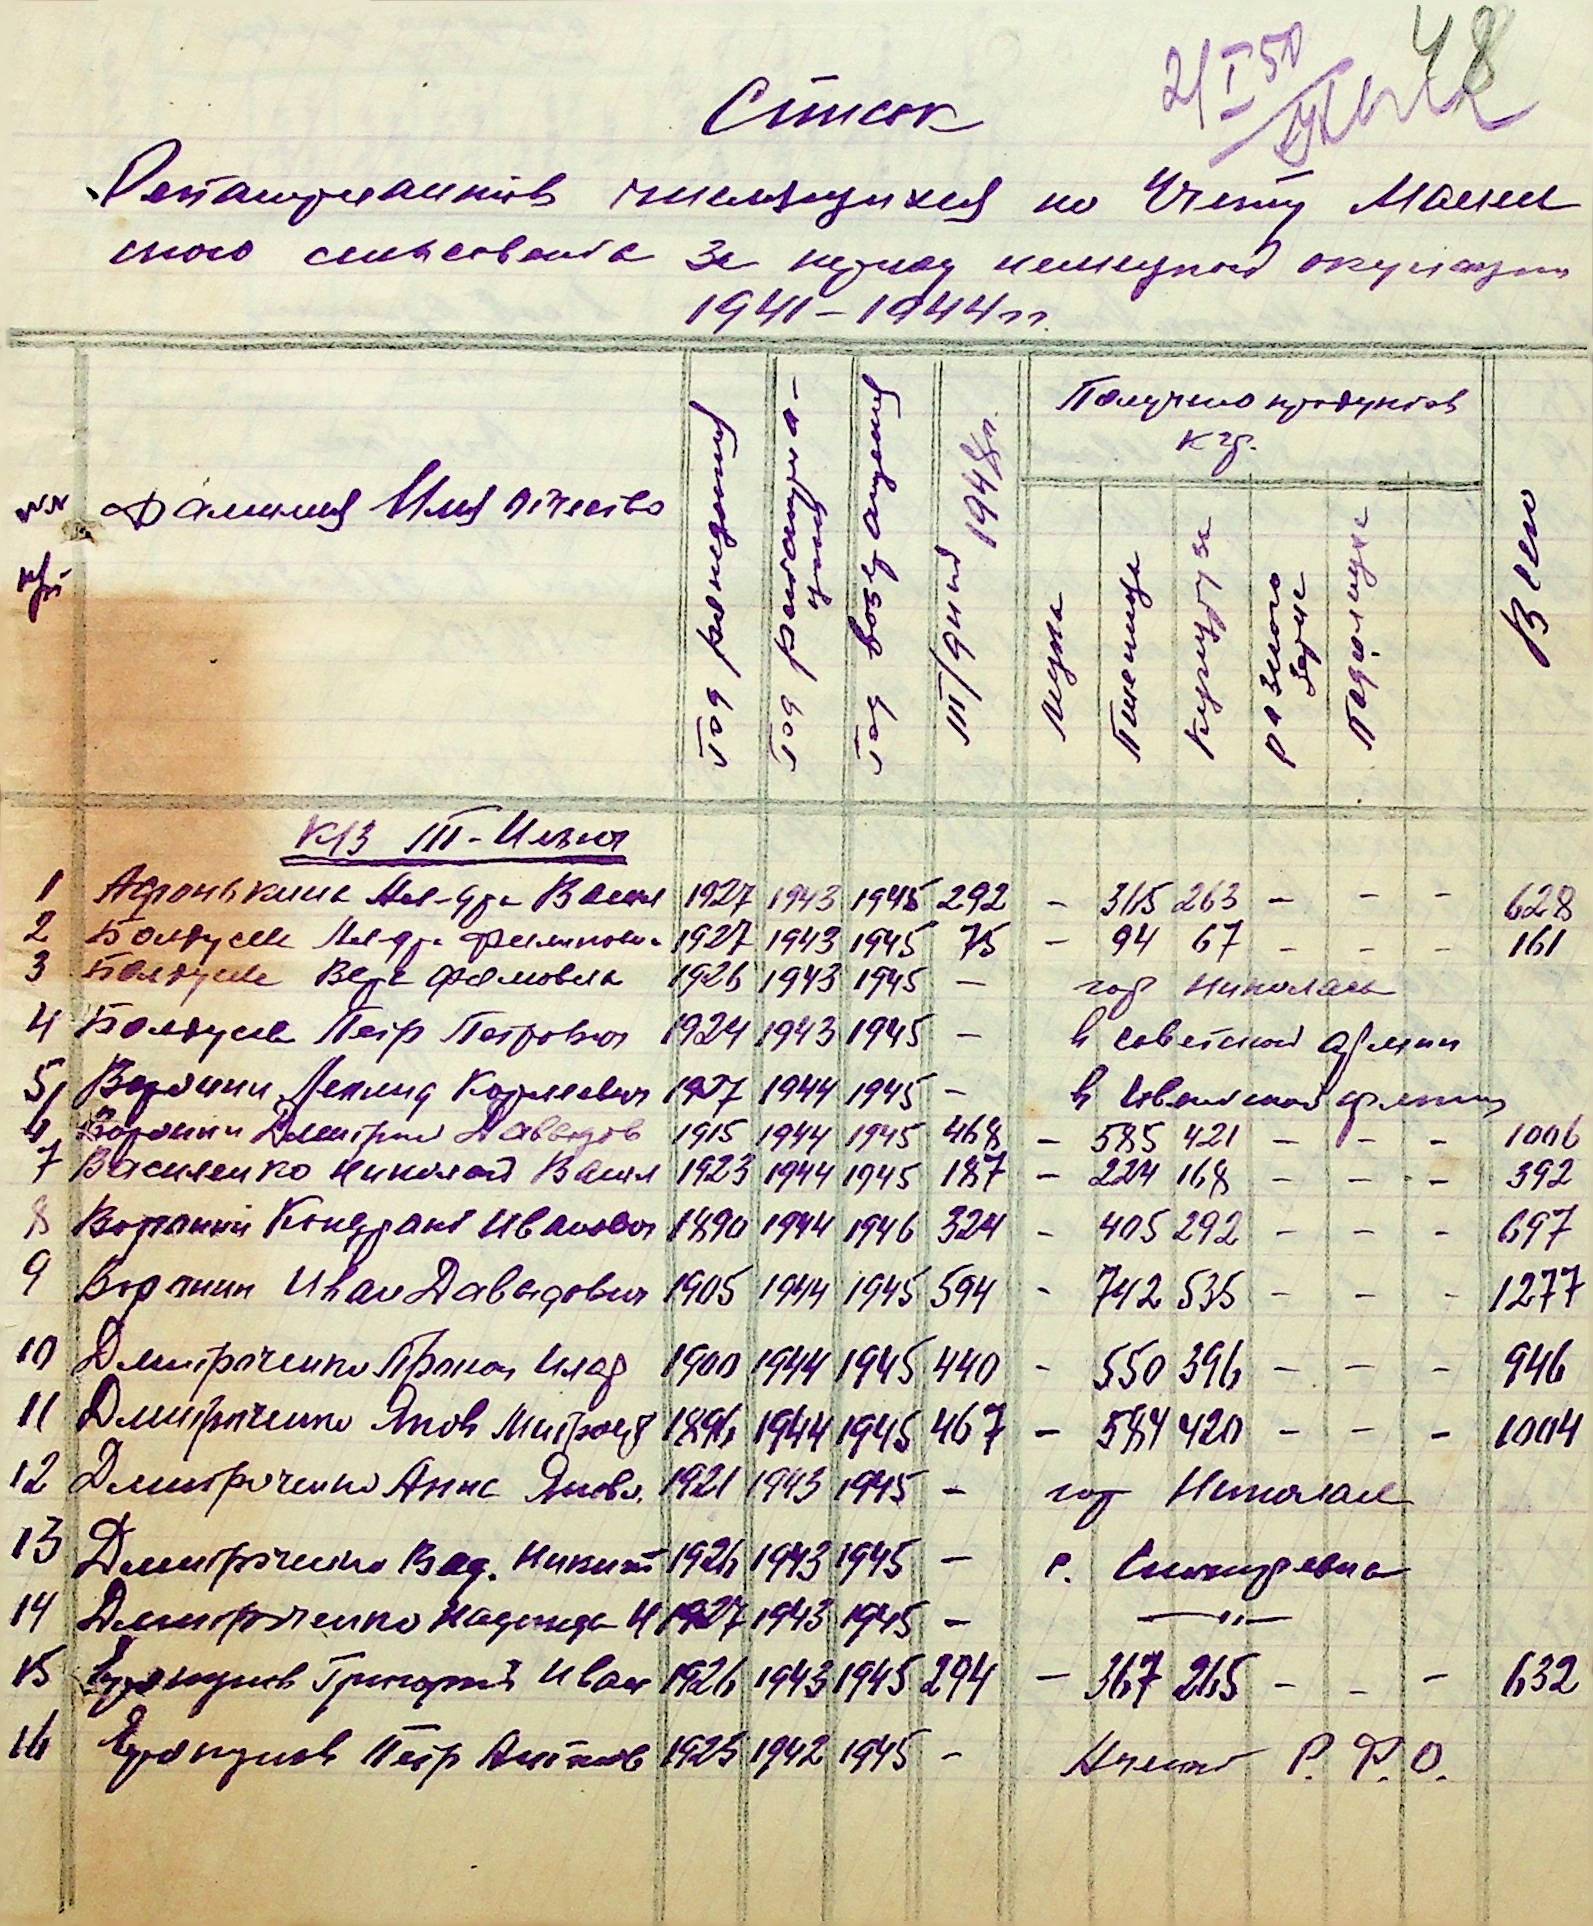 48
21/I 50
Список
Репатриантов числящихся по Учету
ского сельсовета за период немецкой окупации
1941–1944 гг.
№№ п/п
Фамилия Имя отчество
Год рождения
Год репатриации
Год возвращения
т/дней 1948 г.
Получено продуктов
кгр.
мука
Пшеница
Кукуруза
разного зерна
Подсолнуха
Всего
К/З III-Интер
1 Васил 1927 1943 1945 292 – 365 263 – – – 628
2 Болдусева 1927 1943 1945 75 – 94 67 – – – 161
3 Болдусева Вера Фомовна 1926 1943 1945 – гор Николаев
4 Болдусев Петр Петрович 1924 1943 1945 – в советской армии
5 Воронин Леонид 1927 1944 1945 – в Советской армии
6 Воронин Дмитрий Давыдов 1915 1944 1945 468 – 585 421 – – – 1006
7 Василенко Николай Васил 1923 1944 1945 187 – 224 168 – – – 392
8 Воронин Кондрат Иванович 1890 1944 1946 324 – 405 292 – – – 697
9 Воронин Иван Давыдович 1905 1944 1945 594 – 742 535 – – – 1277
10 Дмитриченко 1900 1944 1945 440 – 550 396 – – – 946
11 Дмитриченко Яков Митроф 1896 1944 1945 467 – 584 420 – – – 1004
12 Дмитриченко Анна Яковл. 1921 1943 1945 – гор Николаев
13 Дмитриченко Никит 1926 1943 1945 – с. Снигиревка
14 Дмитриченко Надежда Н 1927 1943 1945 – —"—
15 Григорий Иван 1926 1943 1945 294 – 367 265 – – – 632
16 Петр Антонов 1923 1942 1945 – Р. Ф. О.